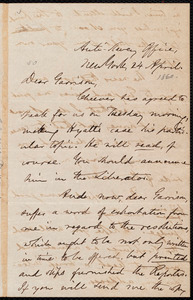 Anti-Slavery Office,
New York 24 April
1860
Dear Garrison,
Cheever has agreed to
speak for us on Tuesday morning,
making Hyatt's case his partic-
ular topic. He will read, of
course. You should announce
him in the Liberator.
And now, dear Garrison,
suffer a word of exhortation from
me in regard to the resolutions,
which ought to be not only written
in time to be offered, but printed
and slips furnished the Reporters.
If you will find me the copy